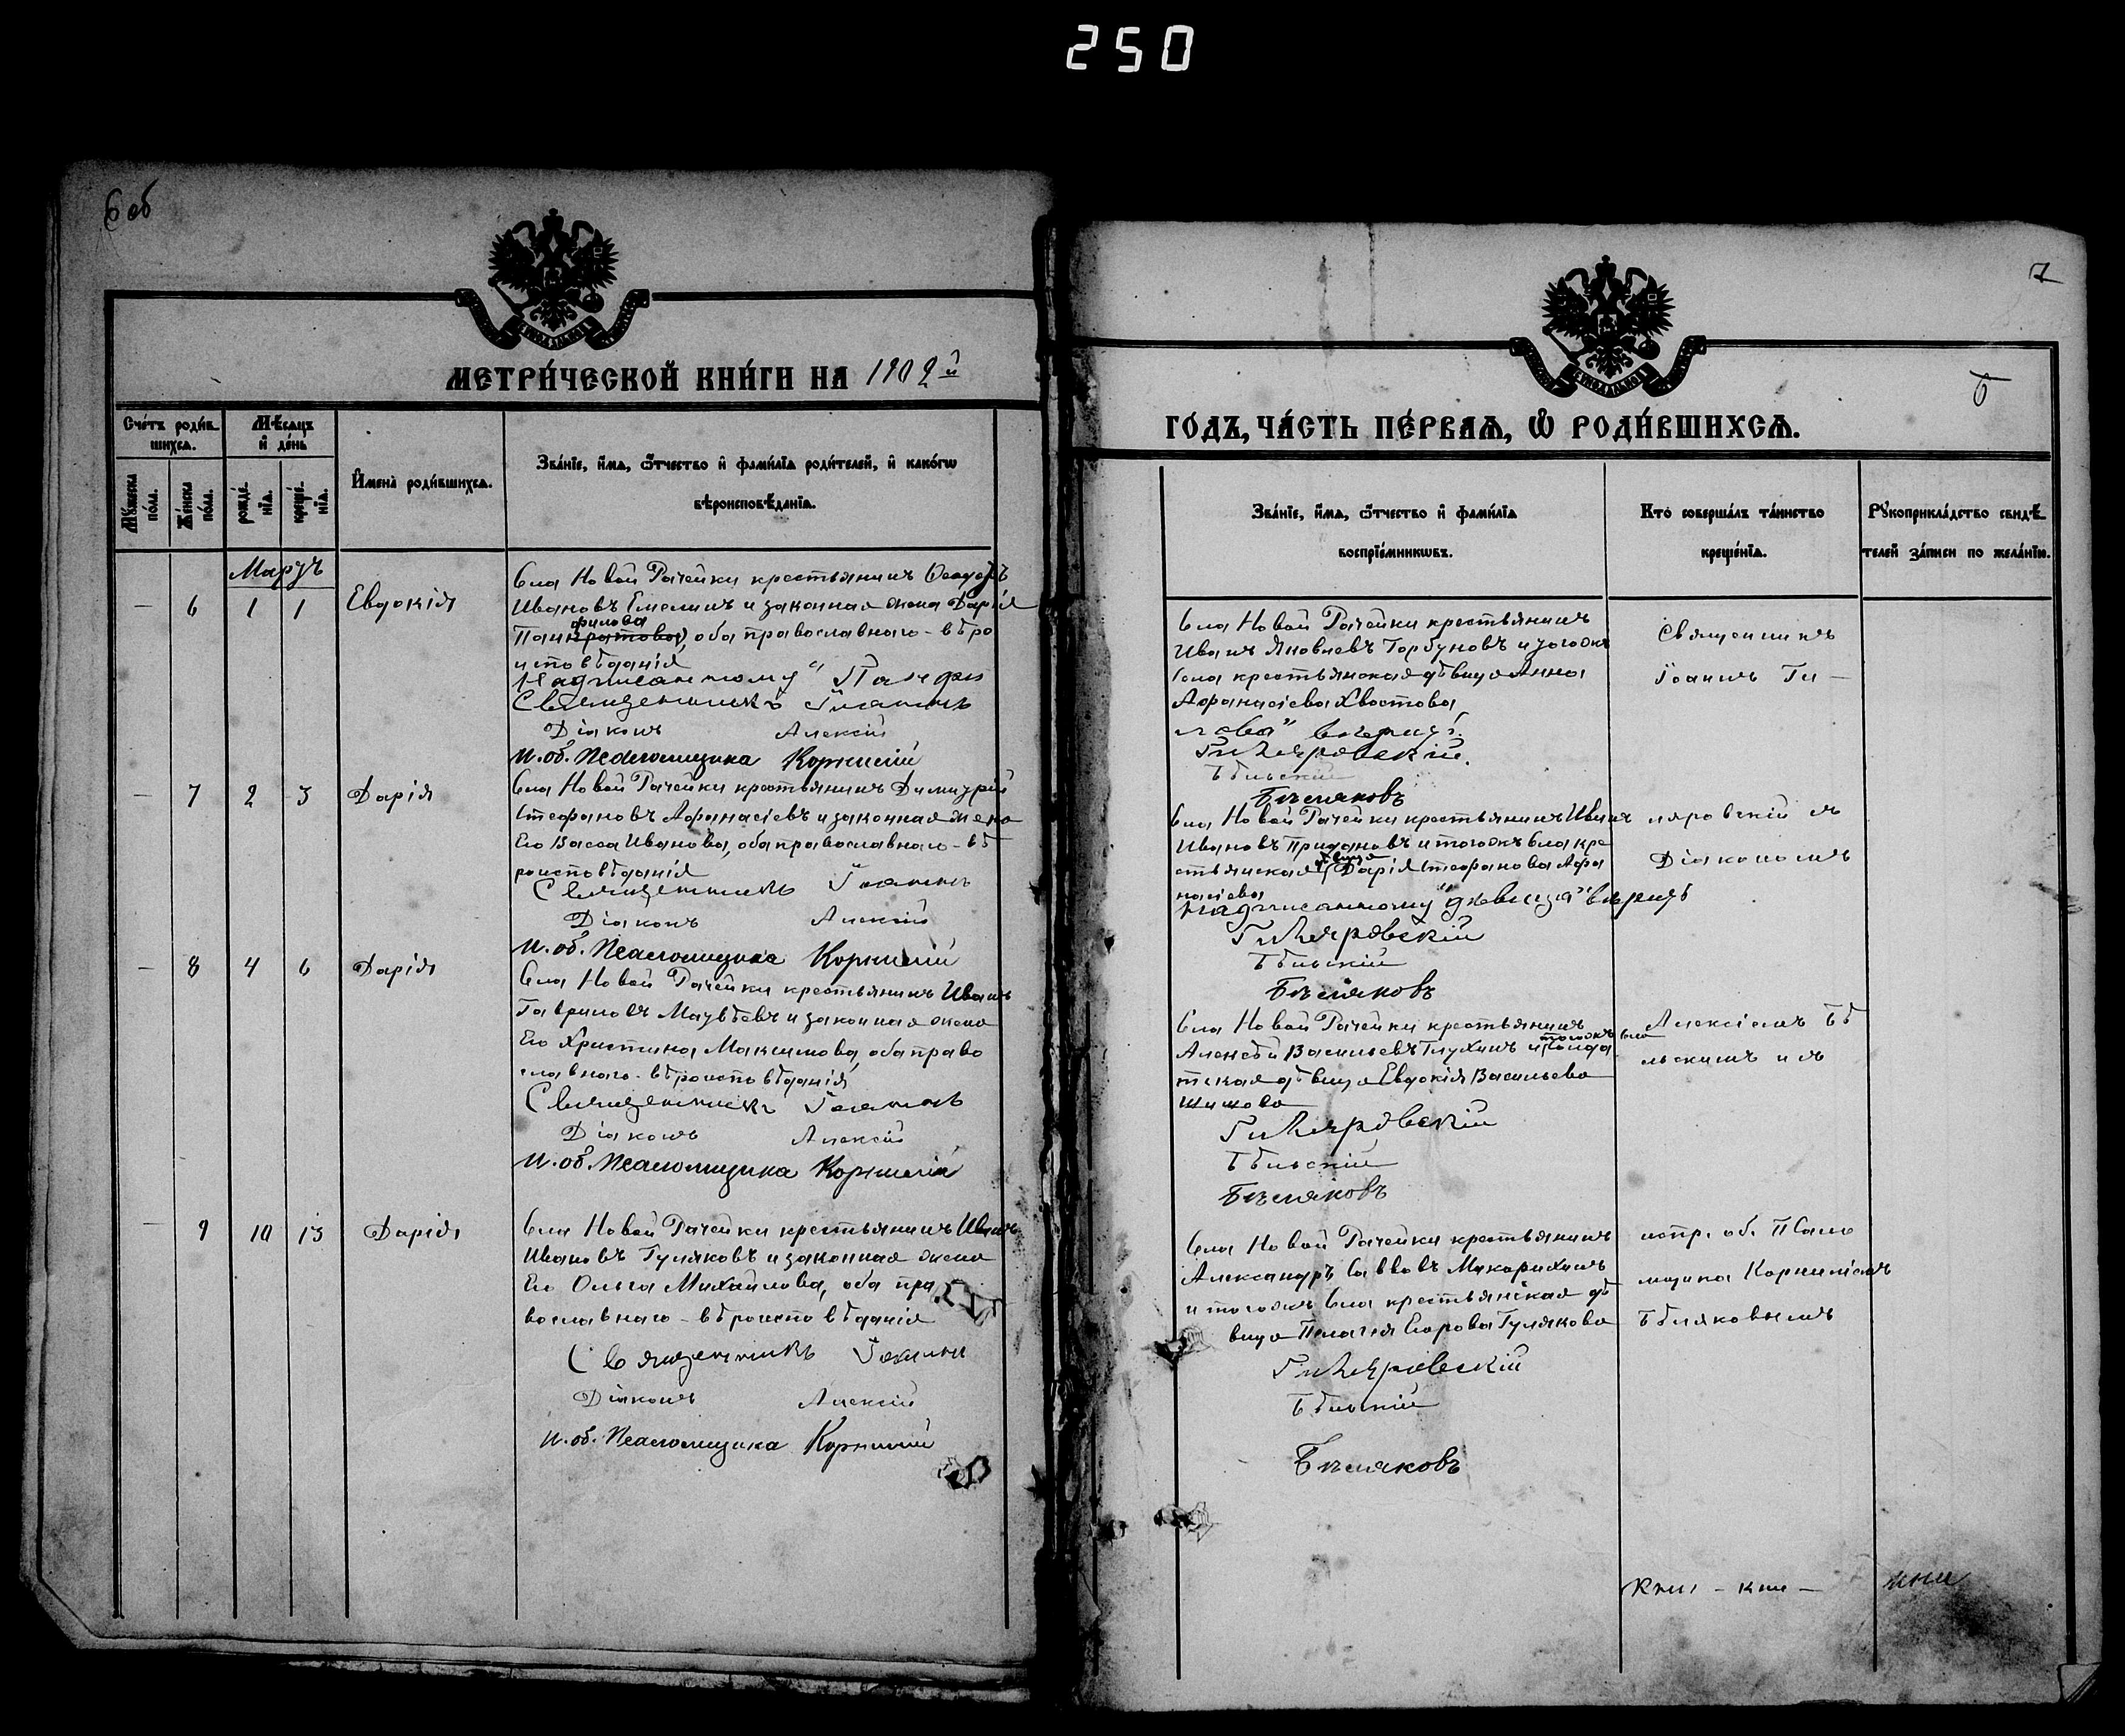 250
6 об
МЕТРИ́ЧЕСКОЙ КНИ́ГИ НА 1902й
Сче́тъ роди́вшихсѧ.
Мѣ́сѧцъ и҆ де́нь
Мꙋ́жеска по́ла.
Же́нска по́ла.
рожде́нїѧ.
креще́нїѧ.
И҆мена̀ роди́вшихсѧ.
Зва́нїе, и҆́мѧ, ѻ҆́тчество и҆ фамі́лїѧ роди́телей, и҆ како́гѡ
вѣроисповѣ́данїѧ.
Мартъ
— 6 1 1 Евдокія
Села Новой Рачейки крестьянинъ Ѳеодоръ
Ивановъ Емелинъ и законная жена Дарія
филова
Панкратова, оба православнаго - вѣро
исповѣданія
Надписанному "Панфи
Священникъ Іоаннъ
Діаконъ Алексій
И. об. Псаломщика Корнилій
— 7 2 3 Дарія
Села Новой Рачейки крестьянинъ Димитрій
Стефановъ Афанасіевъ и законная жена
Его Васса Иванова, оба православнаго - вѣ
роисповѣданія
Священникъ Іоаннъ
Діаконъ Алексій
И. об. Псаломщика Корнилій
— 8 4 6 Дарія
Села Новой Рачейки крестьянинъ Иванъ
Гавриловъ Матвѣевъ и законная жена
Его Христина Максимова, оба право
славнаго - вѣроисповѣданія
Священникъ Іоаннъ
Діаконъ Алексій
И. об. Псаломщика Корнилій
— 9 10 13 Дарія
Села Новой Рачейки крестьянинъ Иванъ
Ивановъ Гуляковъ и законная жена
Его Ольга Михайлова, оба пра
вославнаго - вѣроисповѣданія
Священникъ Іоаннъ
Діаконъ Алексій
И. об. Псаломщика Корнилій
7
ГО́ДЪ, ЧА́СТЬ ПЕ́РВАѦ, Ѡ҆ РОДИ́ВШИХСѦ.
Зва́нїе, и҆́мѧ, ѻ҆́тчество и҆ фамі́лїѧ
воспрїе́мникѡвъ.
Кто̀ соверша́лъ та́инство
креще́нїѧ.
Рꙋкоприкла́дство свидѣ́телей за́писи по жела́нїю.
Села Новой Рачейки крестьянинъ
Иванъ Яковлевъ Горбуновъ и тогожъ
села крестьянская дѣвица Анна
Афанасіева Хвостова
лова" вѣрить.
Гиляровскій.
Бѣльскій
Бѣляковъ
Священникъ
Іоаннъ Ги-
Села Новой Рачейки крестьянинъ Иванъ
Ивановъ Придановъ и тогожъ села кре
дѣвица
стьянская Дарія Стефанова Афа
насіева
Надписанному "дѣвица" вѣрить
Гиляровскій
Бѣльскій
Бѣляковъ
ляровскій съ
Діакономъ
Села Новой Рачейки крестьянинъ
тогожъ села
Алексѣй Васильевъ Глухинъ и солда
тская дѣвица Евдокія Васильева
Шишова
Гиляровскій
Бѣльскій
Бѣляковъ
Алексіемъ Бѣ
льскимъ и съ
Села Новой Рачейки крестьянинъ
Александръ Савовъ Макарихинъ
и тогожъ села крестьянская дѣ
вица Пелагія Егорова Гулякова
Гиляровскій
Бѣльскій
Бѣляковъ
испр. об. Псало
мщика Корниліемъ
Бѣляковымъ